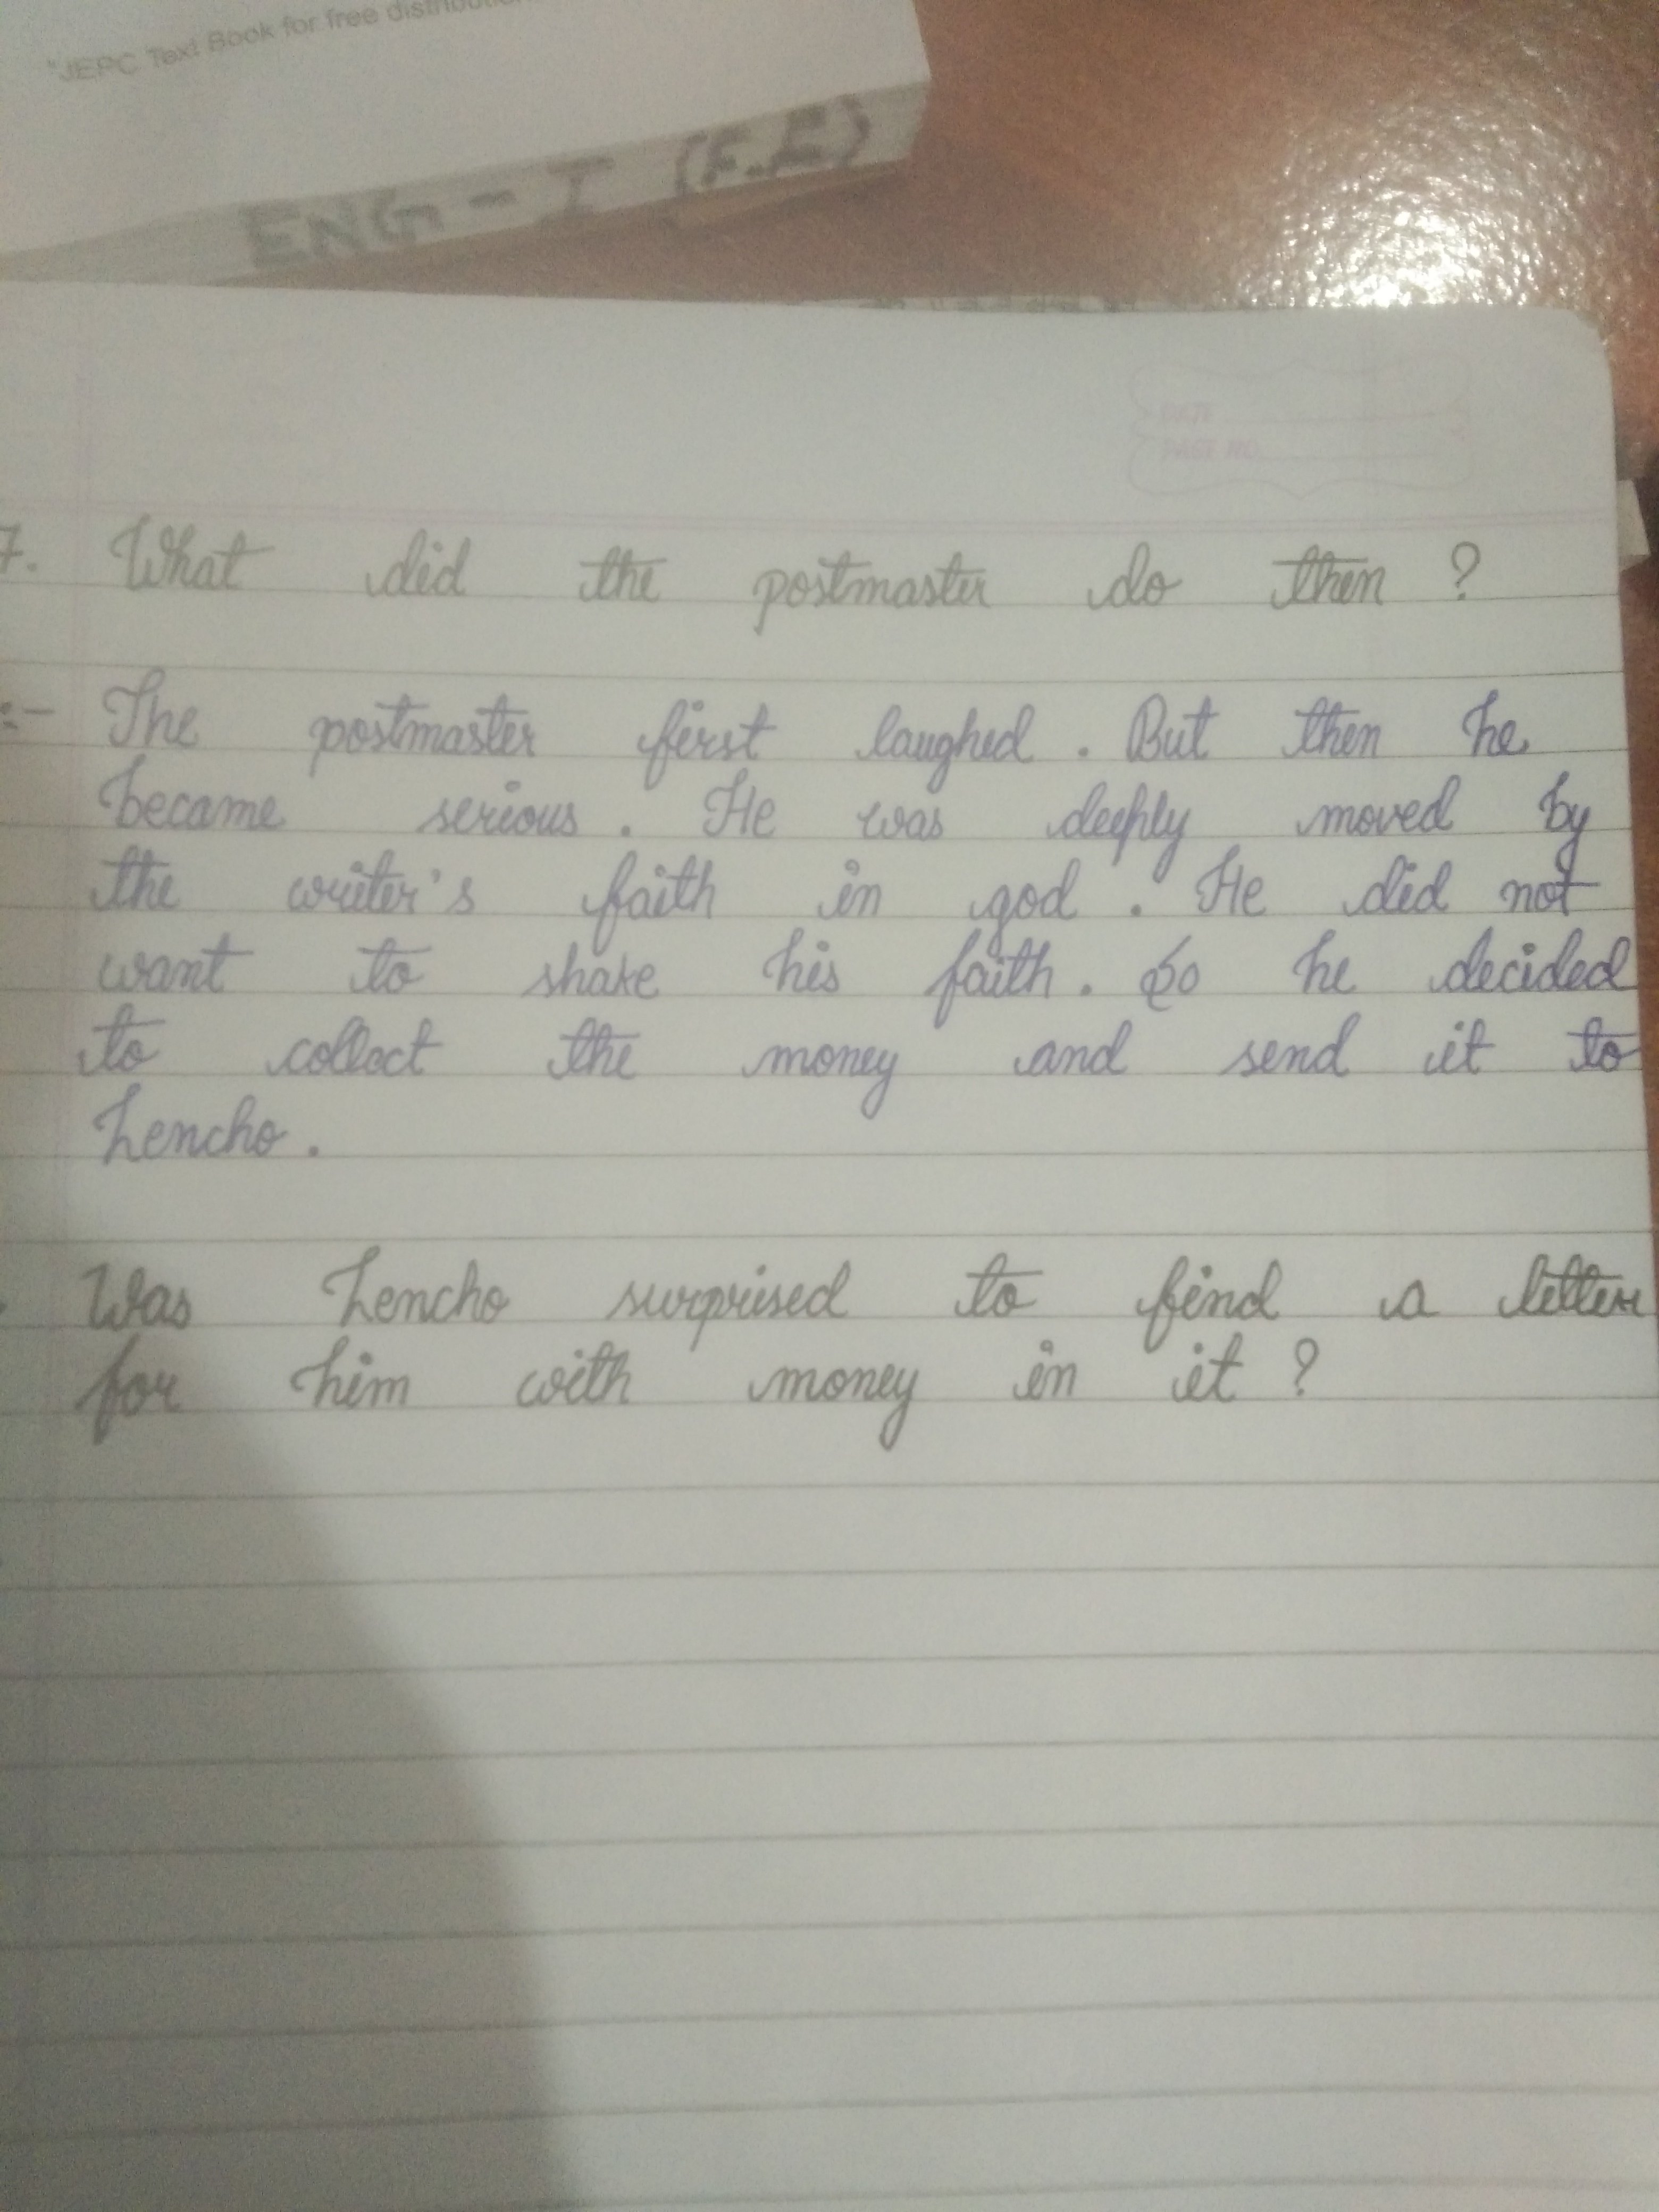 "JEPC Text Book for free
ENG - I (F.E)
DATE
PAGE NO.
7. What did the postmaster do then ?
:- The postmaster first laughed . But then he
became serious . He was deeply moved by
the writer's faith in god . He did not
want to shake his faith . So he decided
to collect the money and send it to
Lencho .
Was Lencho surprised to find a letter
for him with money in it ?